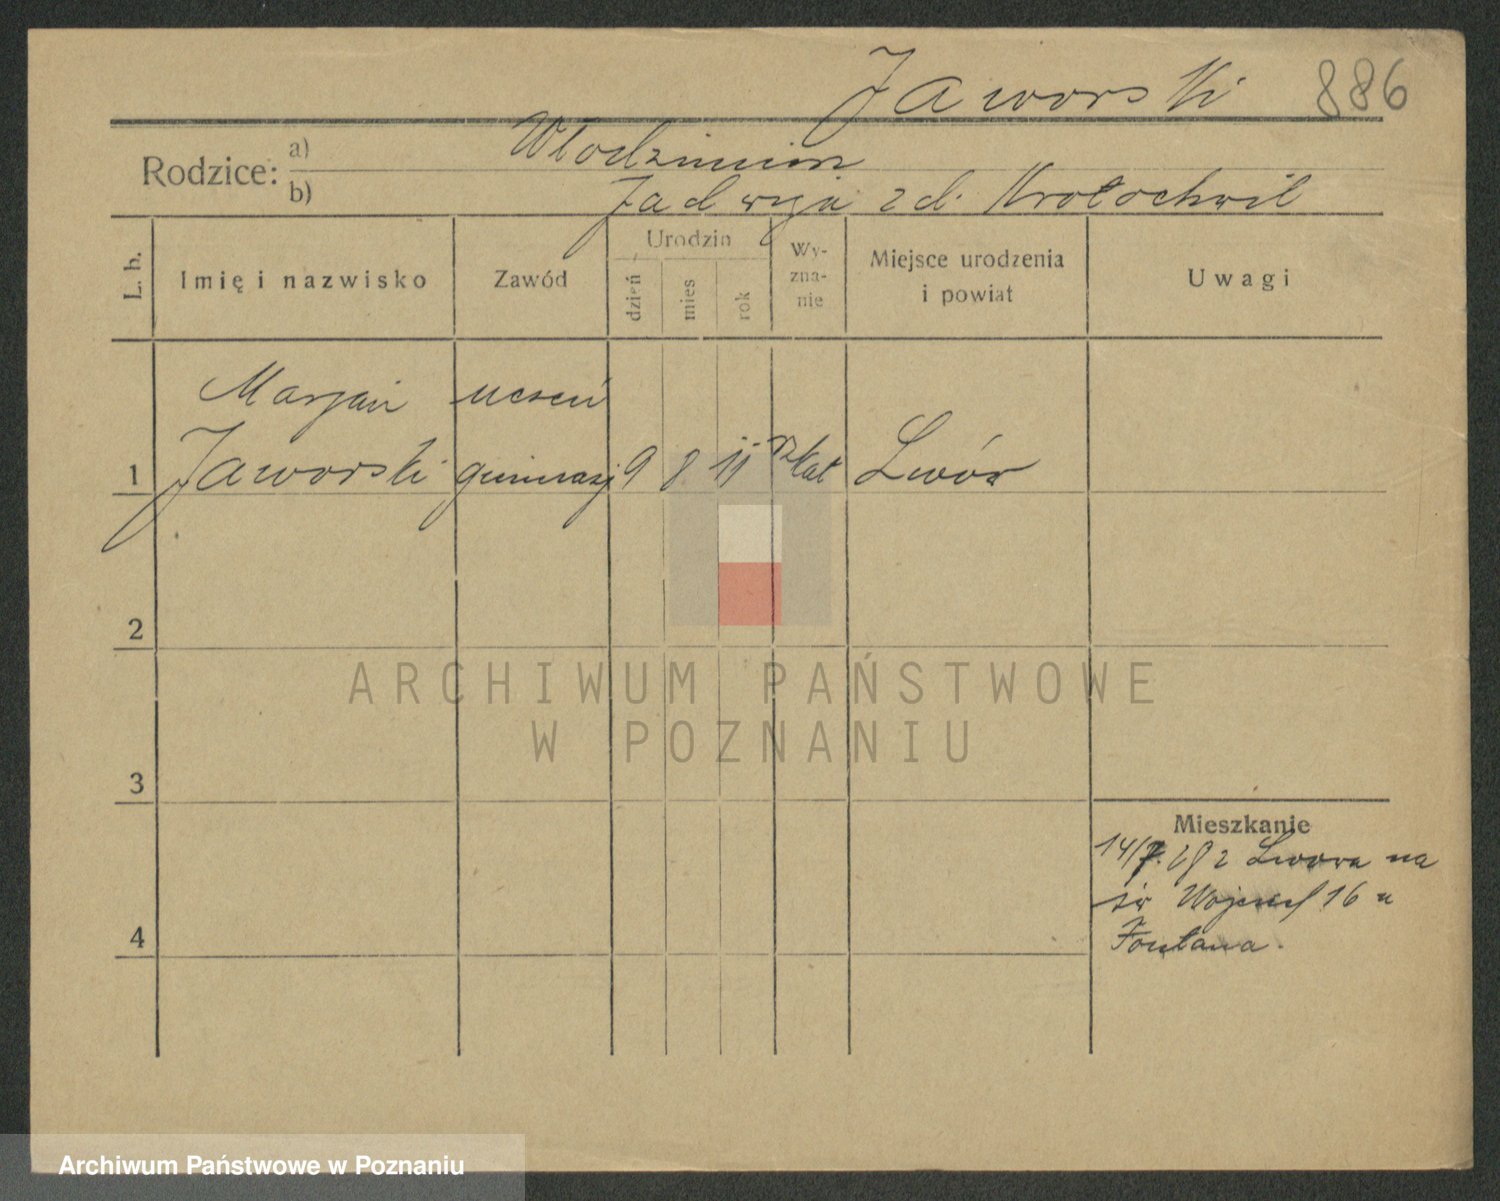 Jaworski 886
Rodzice: a) Włodzimierz
b) Jadwiga zd. Krotochwil
L. b.
Imię i nazwisko
Zawód
Urodzin
dzień
mies
rok
Wy-
zna-
nie
Miejsce urodzenia
i powiat
Uwagi
Marjan uczeń
1 Jaworski gimnazj 9 8 11 rz kat Lwów
2
3
4
ARCHIWUM PAŃSTWOWE
W POZNANIU
Mieszkanie
14/7. 28 z Lwowa na
św Wojciech 16 u
Fontana.
Archiwum Państwowe w Poznaniu